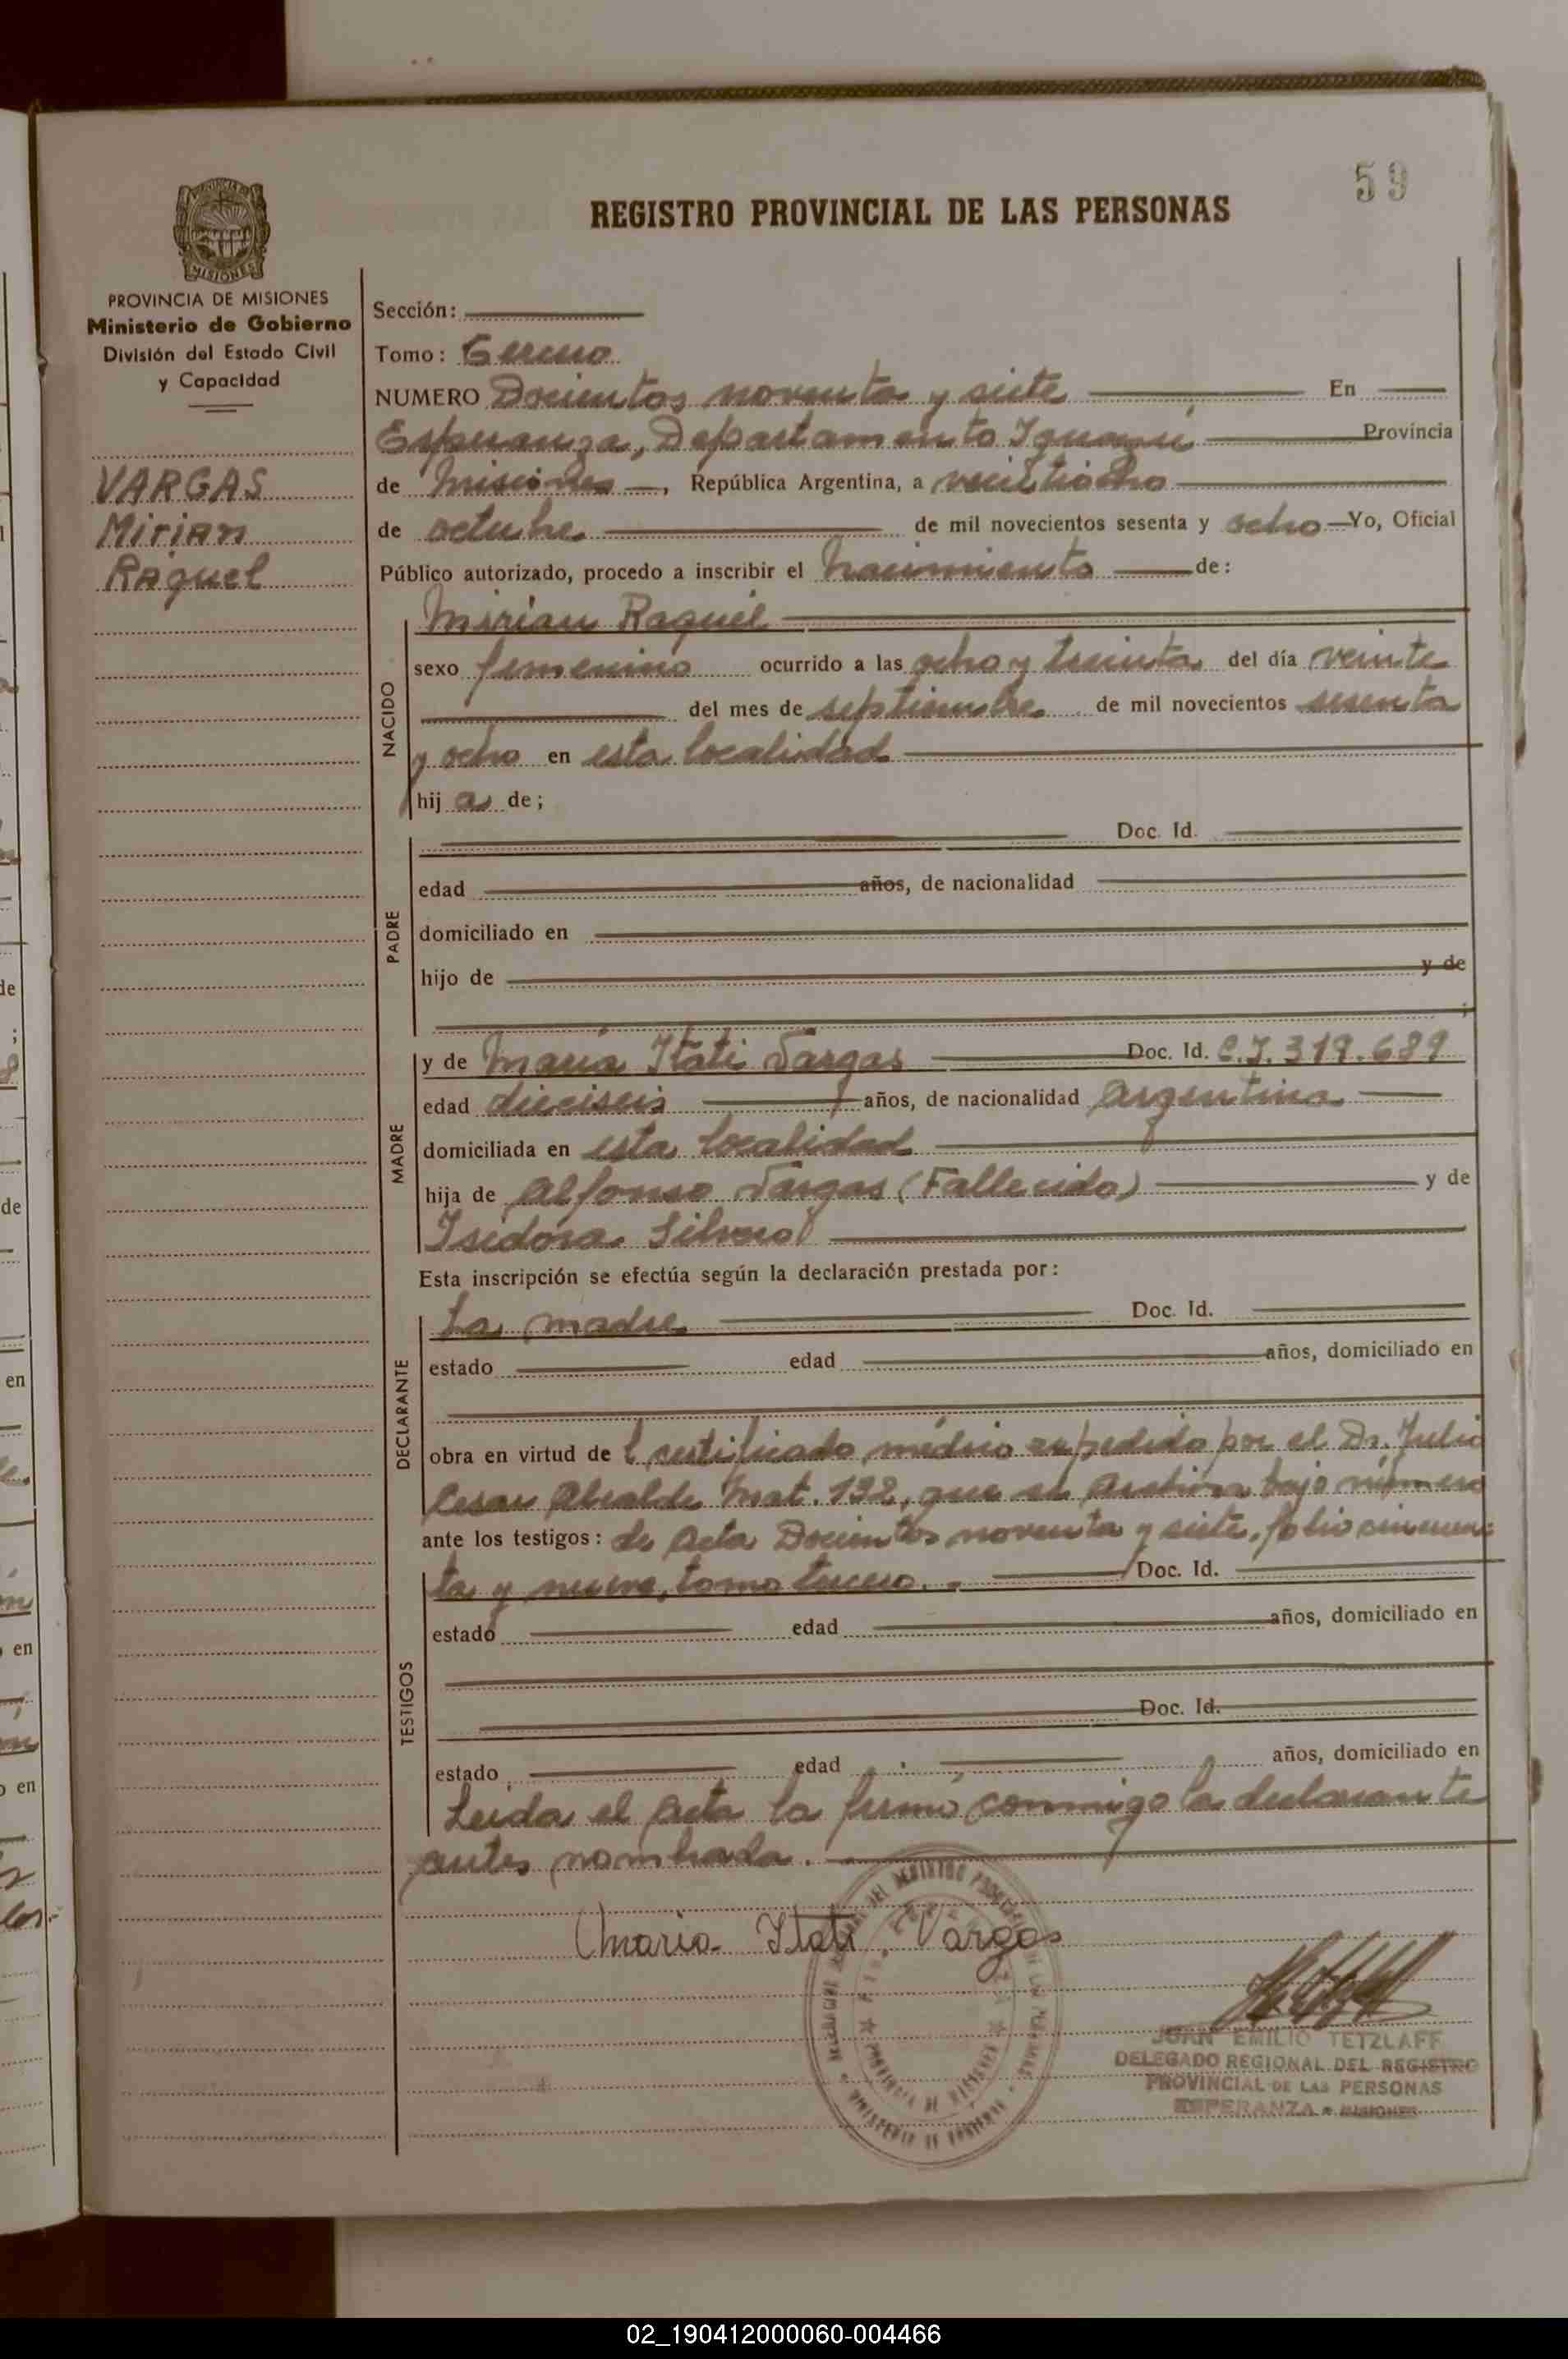 59
REGISTRO PROVINCIAL DE LAS PERSONAS
MISIONES
PROVINCIA DE MISIONES
Ministerio de Gobierno
División del Estado Civil
y Capacidad
VARGAS
Mirian
Raquel
Sección:
Tomo: Tercero
NUMERO Docientos noventa y siete En
Esperanza, Departamento Iguazú Provincia
de Misiones, República Argentina, a veintiocho
de octubre de mil novecientos sesenta y ocho Yo, Oficial
Público autorizado, procedo a inscribir el nacimiento de:
NACIDO
Mirian Raquel
sexo femenino ocurrido a las ocho y treinta del día veinte
del mes de septiembre de mil novecientos sesenta
y ocho en esta localidad
hij a de;
PADRE
Doc. Id.
edad años, de nacionalidad
domiciliado en
hijo de y de
;
MADRE
y de María Itati Vargas Doc. Id. C.I. 319.689
edad dieciseis años, de nacionalidad argentina
domiciliada en esta localidad
hija de Alfonso Vargas (Fallecido) y de
Isidora Silvero
Esta inscripción se efectúa según la declaración prestada por:
DECLARANTE
La madre Doc. Id.
estado edad años, domiciliado en
obra en virtud de l certificado médico expedido por el Dr. Julio
Cesar Alcalde Mat. 132, que se archiva bajo número
ante los testigos: de Acta Docientos noventa y siete, folio cincuen
TESTIGOS
ta y nueve, tomo tercero. Doc. Id.
estado edad años, domiciliado en
Doc. Id.
estado edad años, domiciliado en
Leida el Acta la firmó conmigo la declarante
antes nombrada.
Maria Itati Vargas
PROVINCIA DE MISIONES
MINISTERIO DE GOBIERNO
JUAN EMILIO TETZLAFF
DELEGADO REGIONAL DEL REGISTRO
PROVINCIAL DE LAS PERSONAS
ESPERANZA - MISIONES
02_190412000060-004466